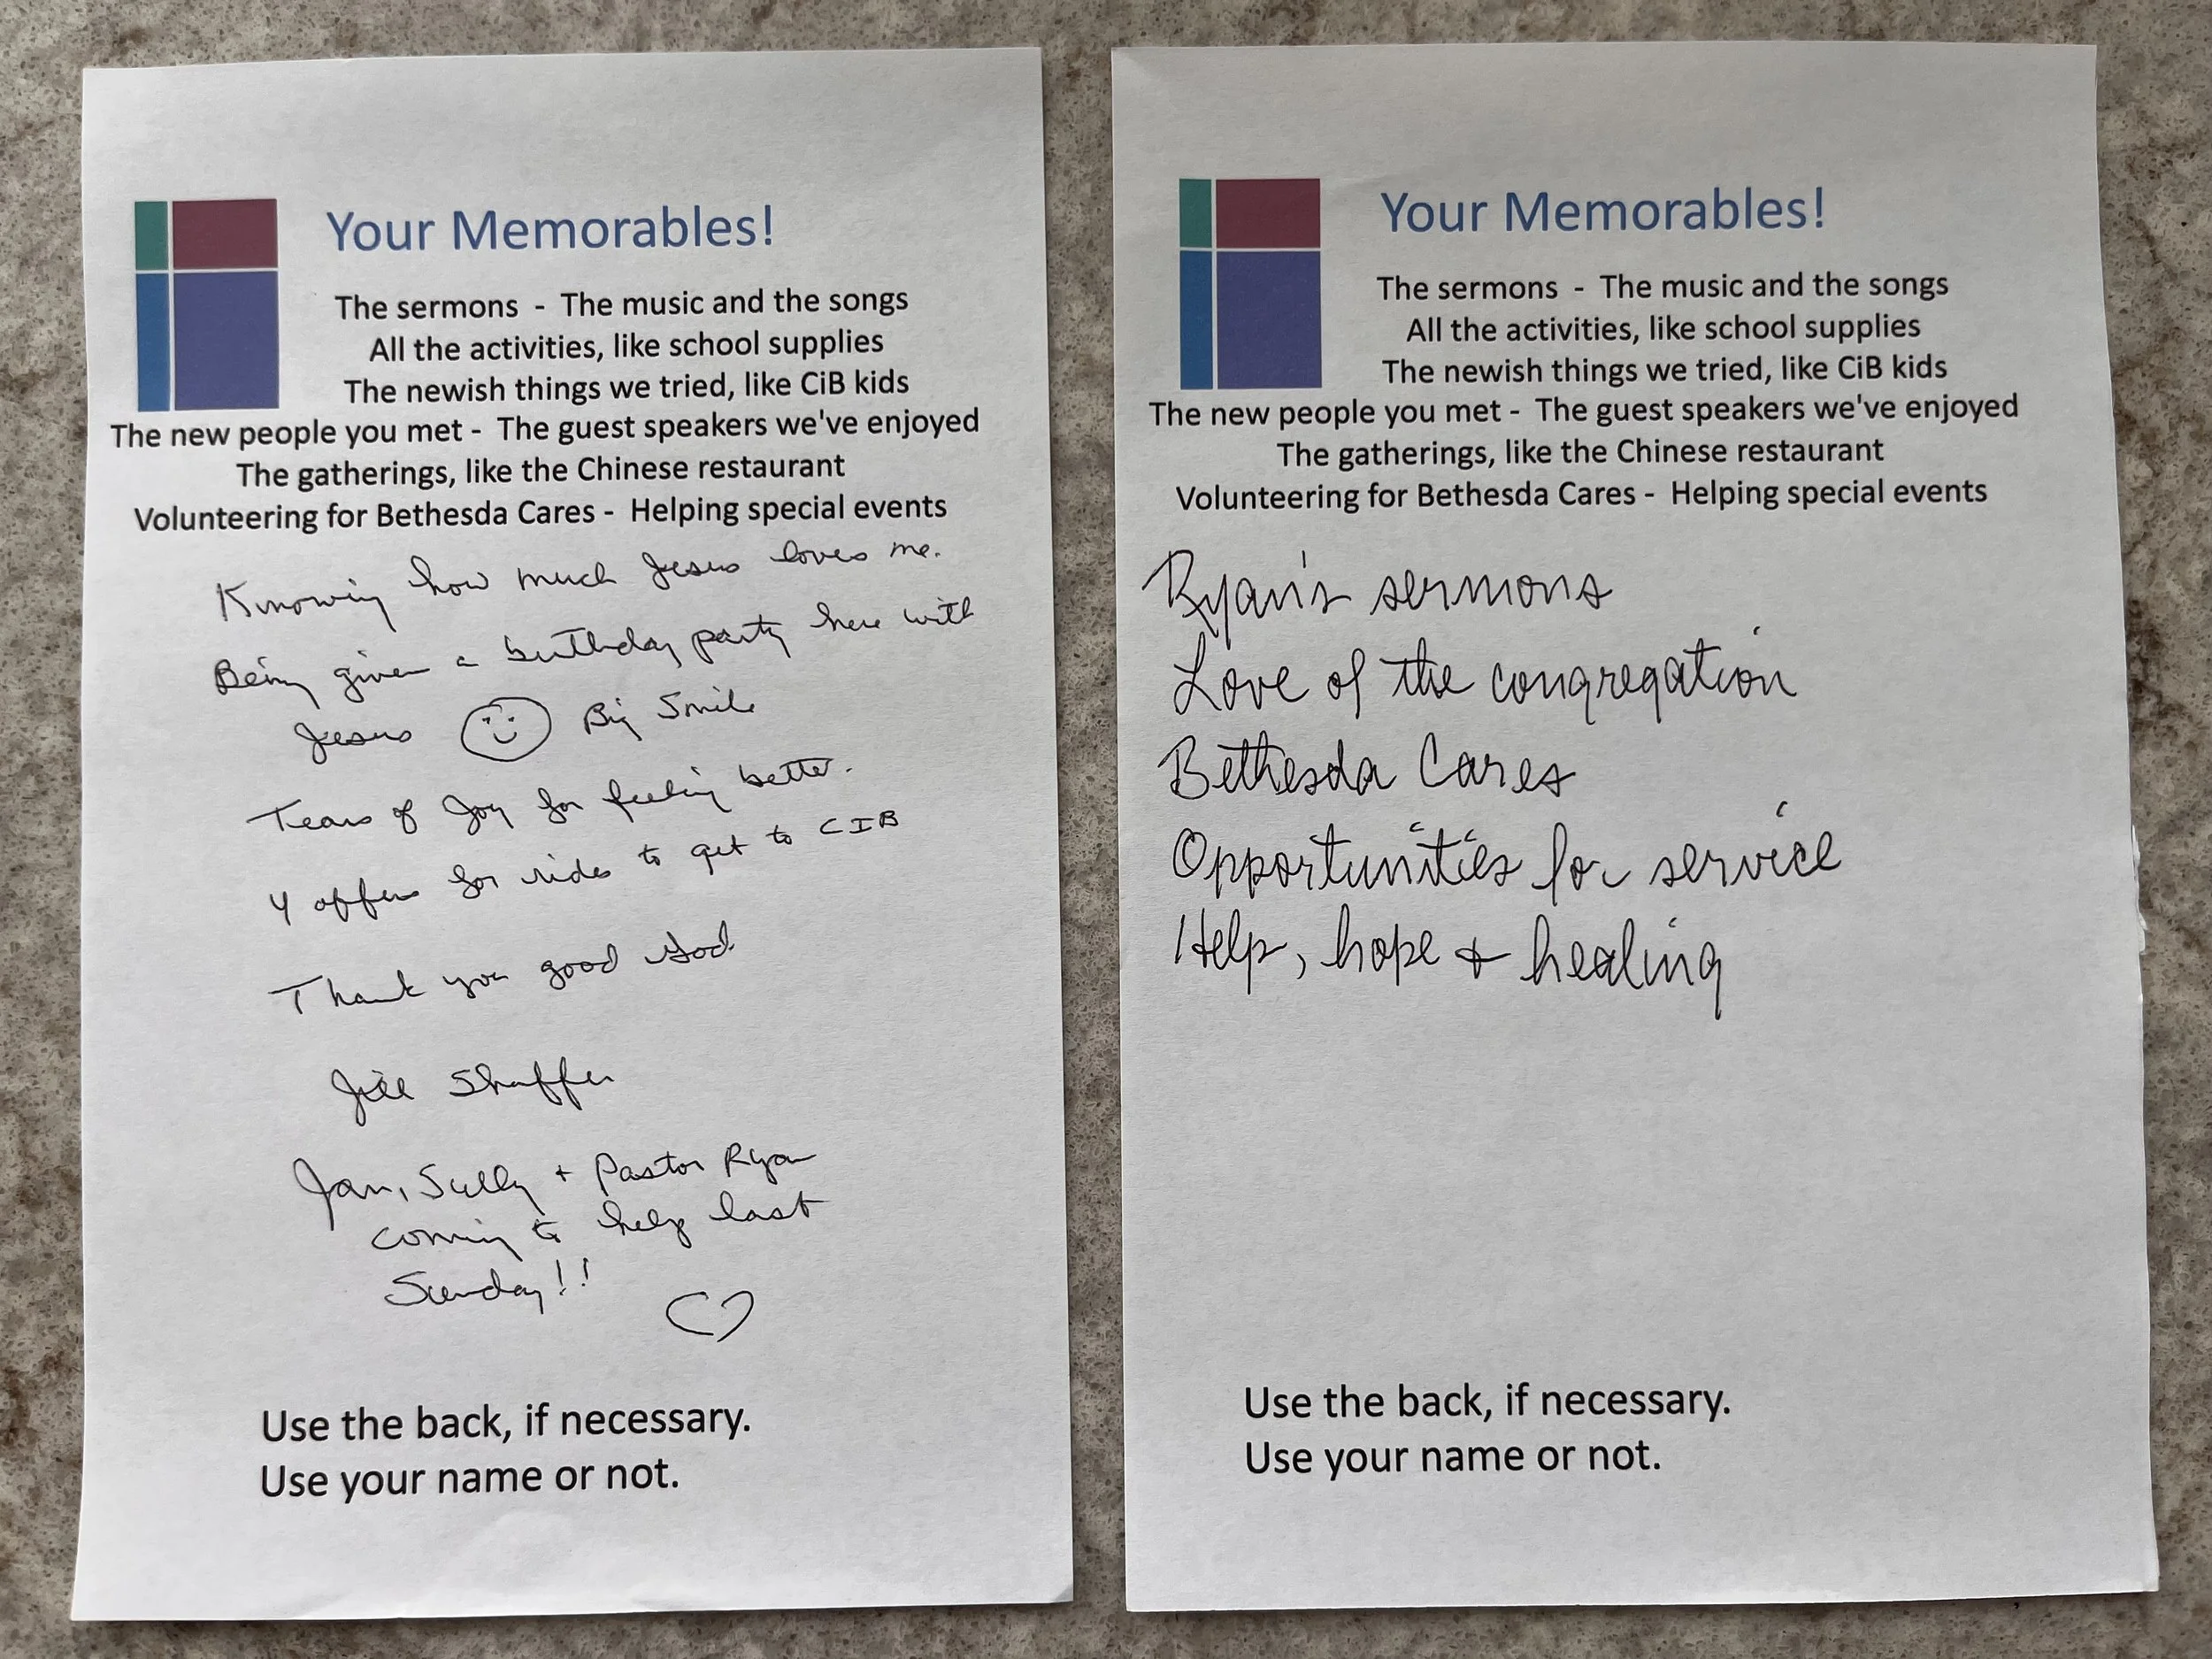 Your Memorables!
The sermons - The music and the songs
All the activities, like school supplies
The newish things we tried, like CiB kids
The new people you met - The guest speakers we've enjoyed
The gatherings, like the Chinese restaurant
Volunteering for Bethesda Cares - Helping special events
Knowing how much Jesus loves me.
Being given a birthday party here with
Jesus Big Smile
Tears of Joy for feeling better.
4 offers for rides to get to CIB
Thank you good God
Jill Shaffer
Jan, Sully + Pastor Ryan
coming to help last
Sunday!!
Use the back, if necessary.
Use your name or not.
Your Memorables!
The sermons - The music and the songs
All the activities, like school supplies
The newish things we tried, like CiB kids
The new people you met - The guest speakers we've enjoyed
The gatherings, like the Chinese restaurant
Volunteering for Bethesda Cares - Helping special events
Ryan's sermons
Love of the congregation
Bethesda Cares
Opportunities for service
Help, hope + healing
Use the back, if necessary.
Use your name or not.